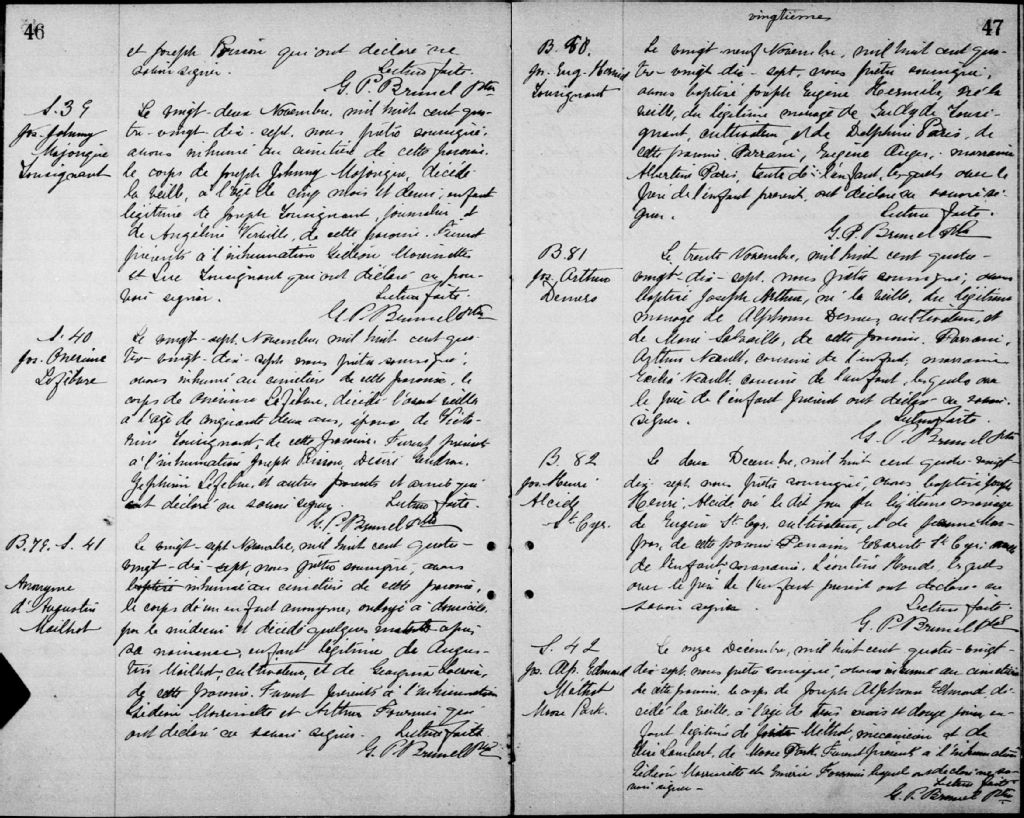 46
et Joseph Poisson qui ont déclaré ne
savoir signer. Lecture faite.
G. P. Brunel Ptre
S. 39
Jos. Johnny
Majorique
Tousignant
Le vingt-deux Novembre, mil huit cent qua-
tre-vingt-dix-sept, nous prêtre soussigné,
avons inhumé au cimetière de cette paroisse,
le corps de Joseph Johnny Majorique, décédé
la veille, à l'âge de cinq mois et demi, enfant
légitime de Joseph Tousignant, journalier, et
de Angélina, de cette paroisse. Furent
présents à l'inhumation Gédéon Morissette
et Tousignant qui ont déclaré ne pou-
voir signer. Lecture faite.
G. P. Brunel Ptre
S. 40
Jos. Onésime
Lefebvre
Le vingt-sept Novembre, mil huit cent qua-
tre-vingt-dix-sept, nous prêtre soussigné,
avons inhumé au cimetière de cette paroisse, le
corps de Onésime Lefebvre, décédé l'avant veille
à l'âge de cinquante deux ans, époux de Victo-
rine Tousignant, de cette paroisse. Furent présents
à l'inhumation Joseph Poisson, Gendron,
Lefebvre, et autres parents et amis qui
ont déclaré ne savoir signer. Lecture faite.
G. P. Brunel Ptre
B. 79. S. 41
Anonyme
d'Augustin
Mailhot
Le vingt-sept Novembre, mil huit cent quatre-
vingt-dix-sept, nous prêtre soussigné, avons
baptisé inhumé au cimetière de cette paroisse,
le corps d'un enfant anonyme, ondoyé à domicile
par le médecin et décédé quelques après
sa naissance, enfant légitime de Augus-
tin Mailhot, cultivateur, et de Georgina Lacroix,
de cette paroisse. Furent présents à l'inhumation
Gédéon Morissette et Arthur Fournier qui
ont déclaré ne savoir signer. Lecture faite
G. P. Brunel Ptre
vingtièmes
47
B. 80.
Jos. Eug. Hermile
Tousignant
Le vingt-neuf Novembre, mil huit cent qua-
tre-vingt-dix-sept, nous prêtre soussigné,
avons baptisé Joseph Eugène, né la
veille, du légitime mariage de Euclyde Tousi-
gnant, cultivateur et de Delphine Paris, de
cette paroisse. Parrain, Eugène Auger, marraine
Albertine Paris, tante de l'enfant, lesquels avec le
père de l'enfant présent, ont déclaré ne savoir si-
gner. Lecture faite.
G. P. Brunel Ptre
B. 81
Jos. Arthur
Demers
Le trente Novembre, mil huit cent quatre-
vingt-dix-sept, nous prêtre soussigné, avons
baptisé Joseph Arthur, né la veille, du légitime
mariage de Alphonse Demers, cultivateur, et
de Marie, de cette paroisse. Parrain,
Arthur Nault, cousin de l'enfant, marraine
Nault, cousine de l'enfant, lesquels avec
le père de l'enfant présent ont déclaré ne savoir
signer. Lecture faite.
G. P. Brunel Ptre
B. 82
Jos. Henri
Alcide
St Cyr.
Le deux Décembre, mil huit cent quatre-vingt-
dix-sept, nous prêtre soussigné, avons baptisé Joseph
Henri Alcide né le dit jour du légitime mariage
de Eugène St Cyr, cultivateur, et de
de cette paroisse. Parrain, St Cyr
de l'enfant, marraine, Léontine Houde, lesquels
avec le père de l'enfant présent ont déclaré ne
savoir signer. Lecture faite.
G. P. Brunel Ptre
S. 42
Jos. Alp. Edmond
Methot
Moose Park.
Le onze Décembre, mil huit cent quatre-vingt-
dix-sept, nous prêtre soussigné, avons inhumé au cimetière
de cette paroisse le corps de Joseph Alphonse Edmond dé-
cédé la veille, à l'âge de trois mois et douze jours, en-
fant légitime de Methot, mécanicien et de
Lambert, de Moose Park. Furent présents à l'inhumation
Gédéon Morissette et Fournier lesquels ont déclaré ne sa-
voir signer. Lecture faite
G. P. Brunel Ptre